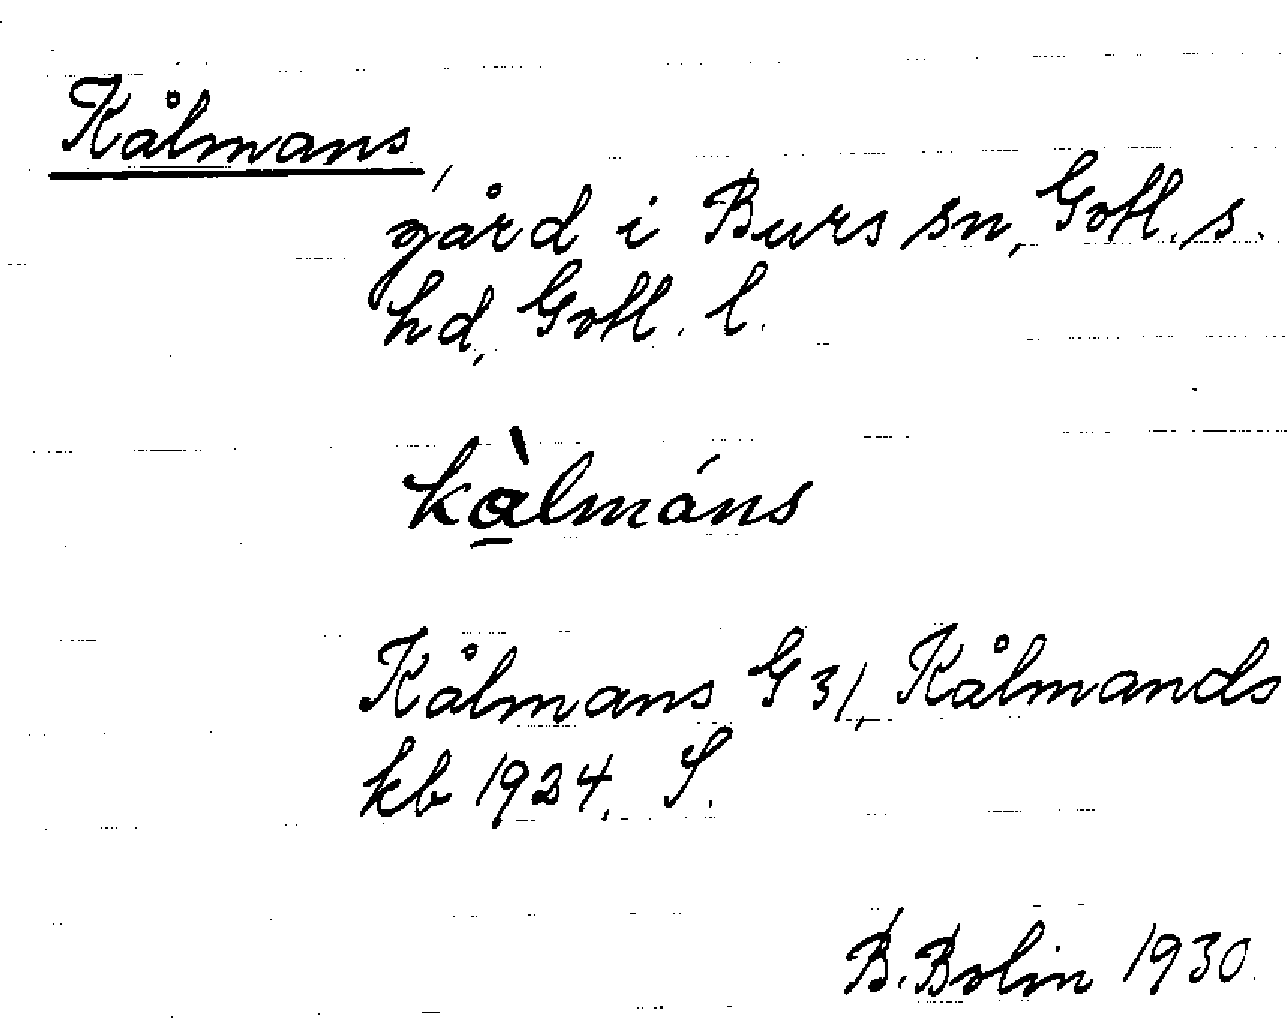 Kålmans,
gård i Burs sn, Gotl. s.
hd, Gotl. l.
kà̱lmáns
Kålmans G 31, Kålmands
kb 1924. S.
B. Bolin 1930.